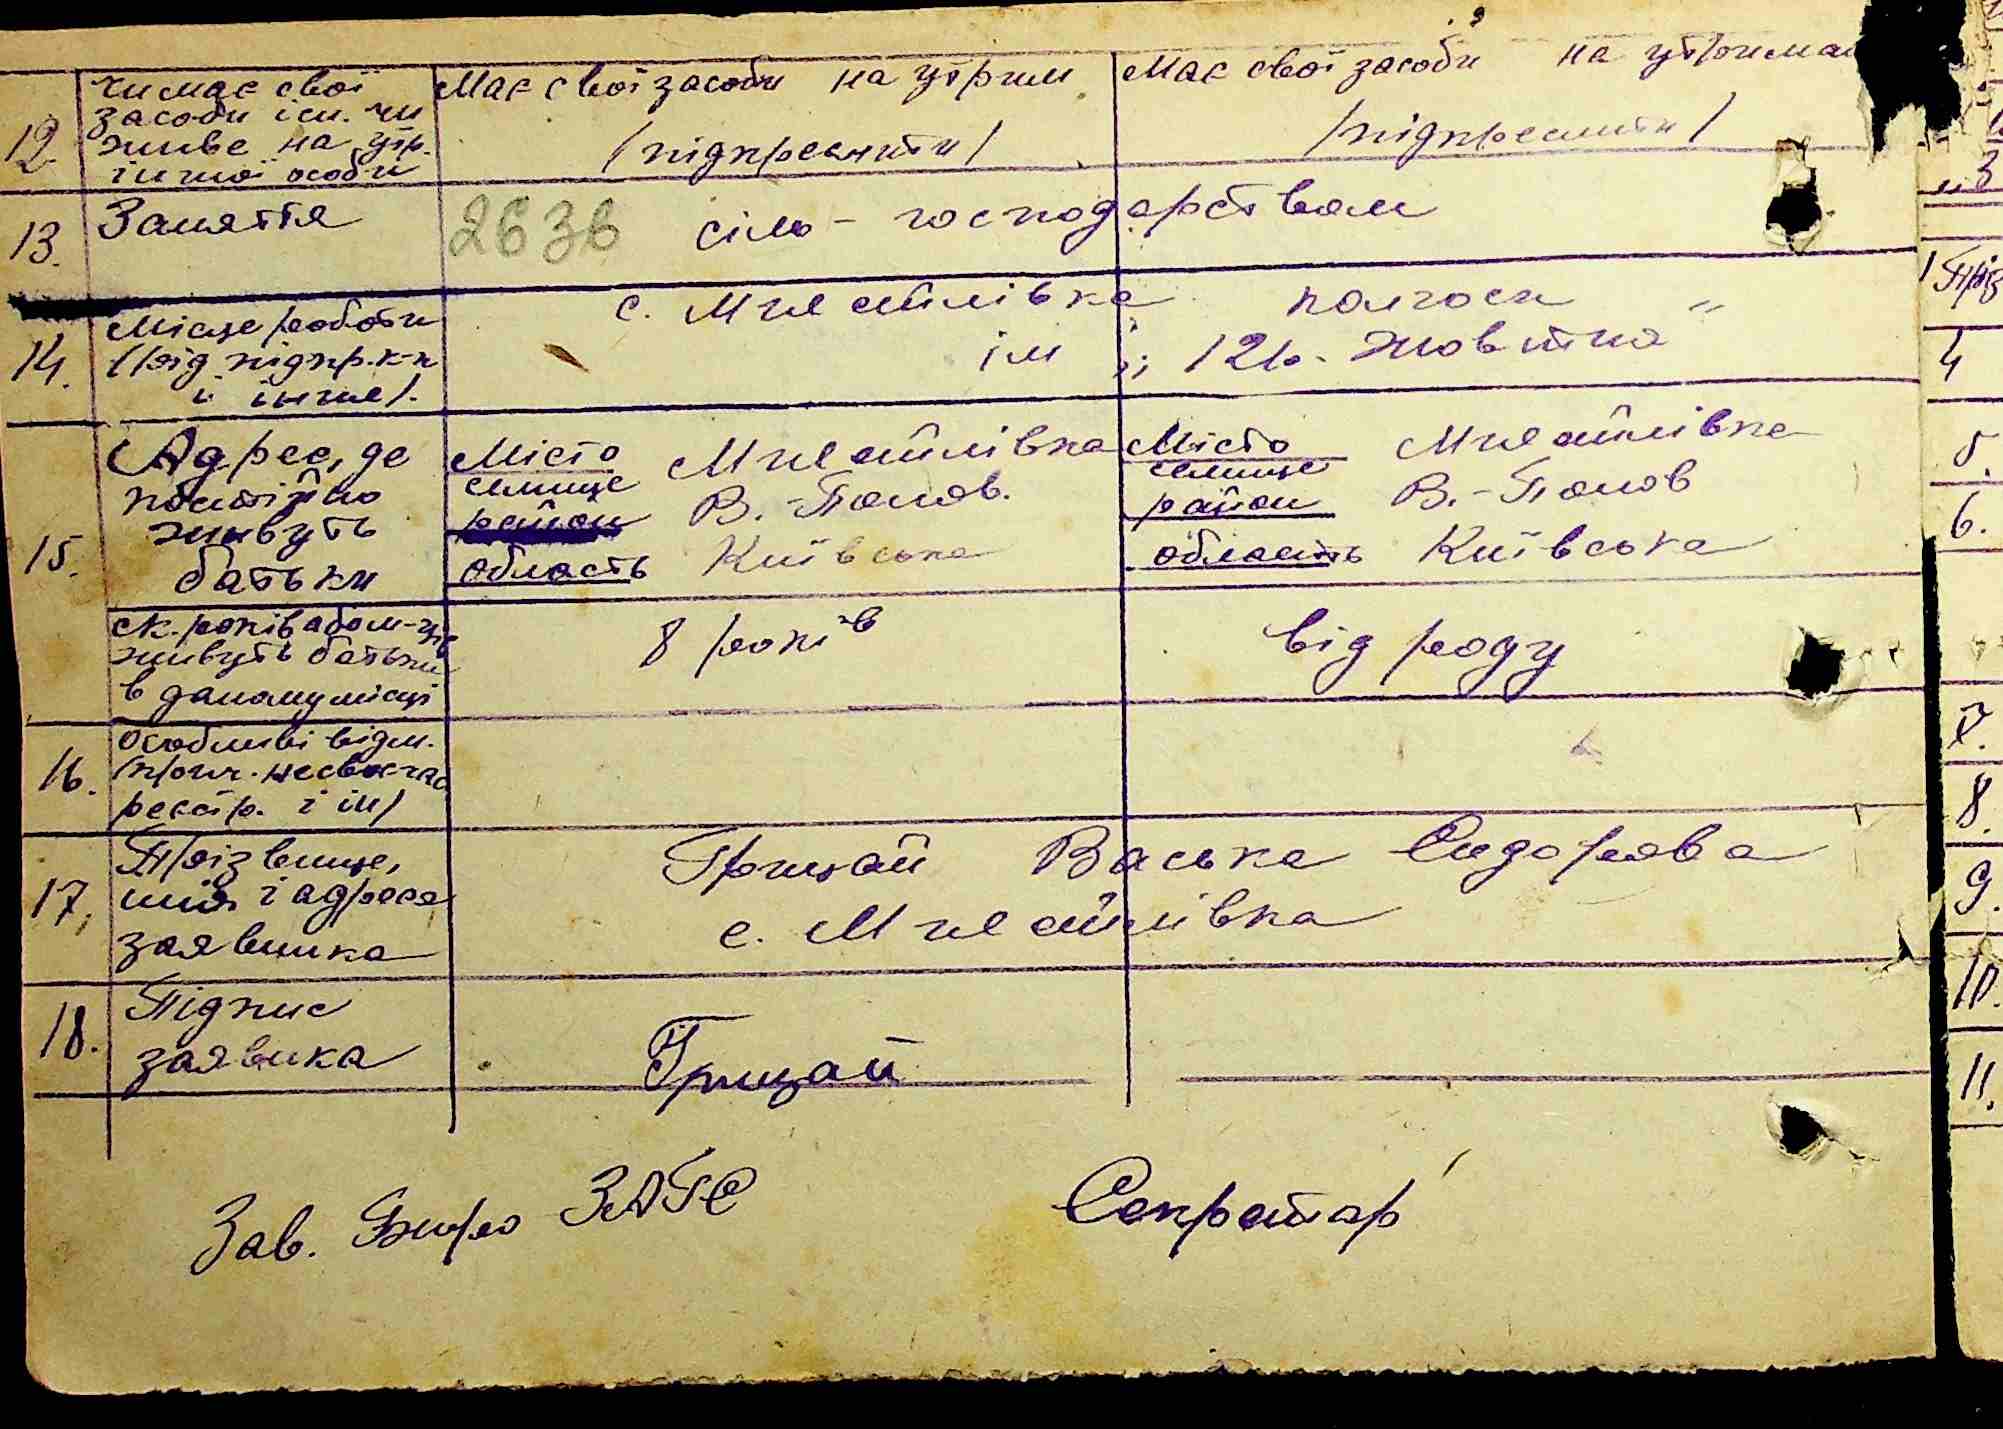 12. чи має свої засоби існ. чи живе на утр. іншої особи
Має свої засоби на утрим
/підкреслити/
Має свої засоби на утриман
/підкреслити/
13. Заняття
2636 сіль-господарством
14. Місце роботи (від підпр. к-п і інше).
с. Михайлівка колгосп
ім „12р. Жовтня"
15. Адрес, де постійно живуть батьки
Місто Михайлівка
селище
район В.-Полов.
область Київська
Місто Михайлівка
селище
район В.-Полов
область Київська
ск. років або м-ців живуть батьки в даному місці
8 років
від роду
16. Особливі відм. /прич. несвоєчас реєстр. і ін/
17. Прізвище, імя і адреса заявника
Грицай Васька Сидорова
с. Михайлівка
18. Підпис заявика
Грицай
Зав. Бюро ЗАГС
Секретар
3
Пріз
4
5.
6.
7.
8.
9.
10.
11.